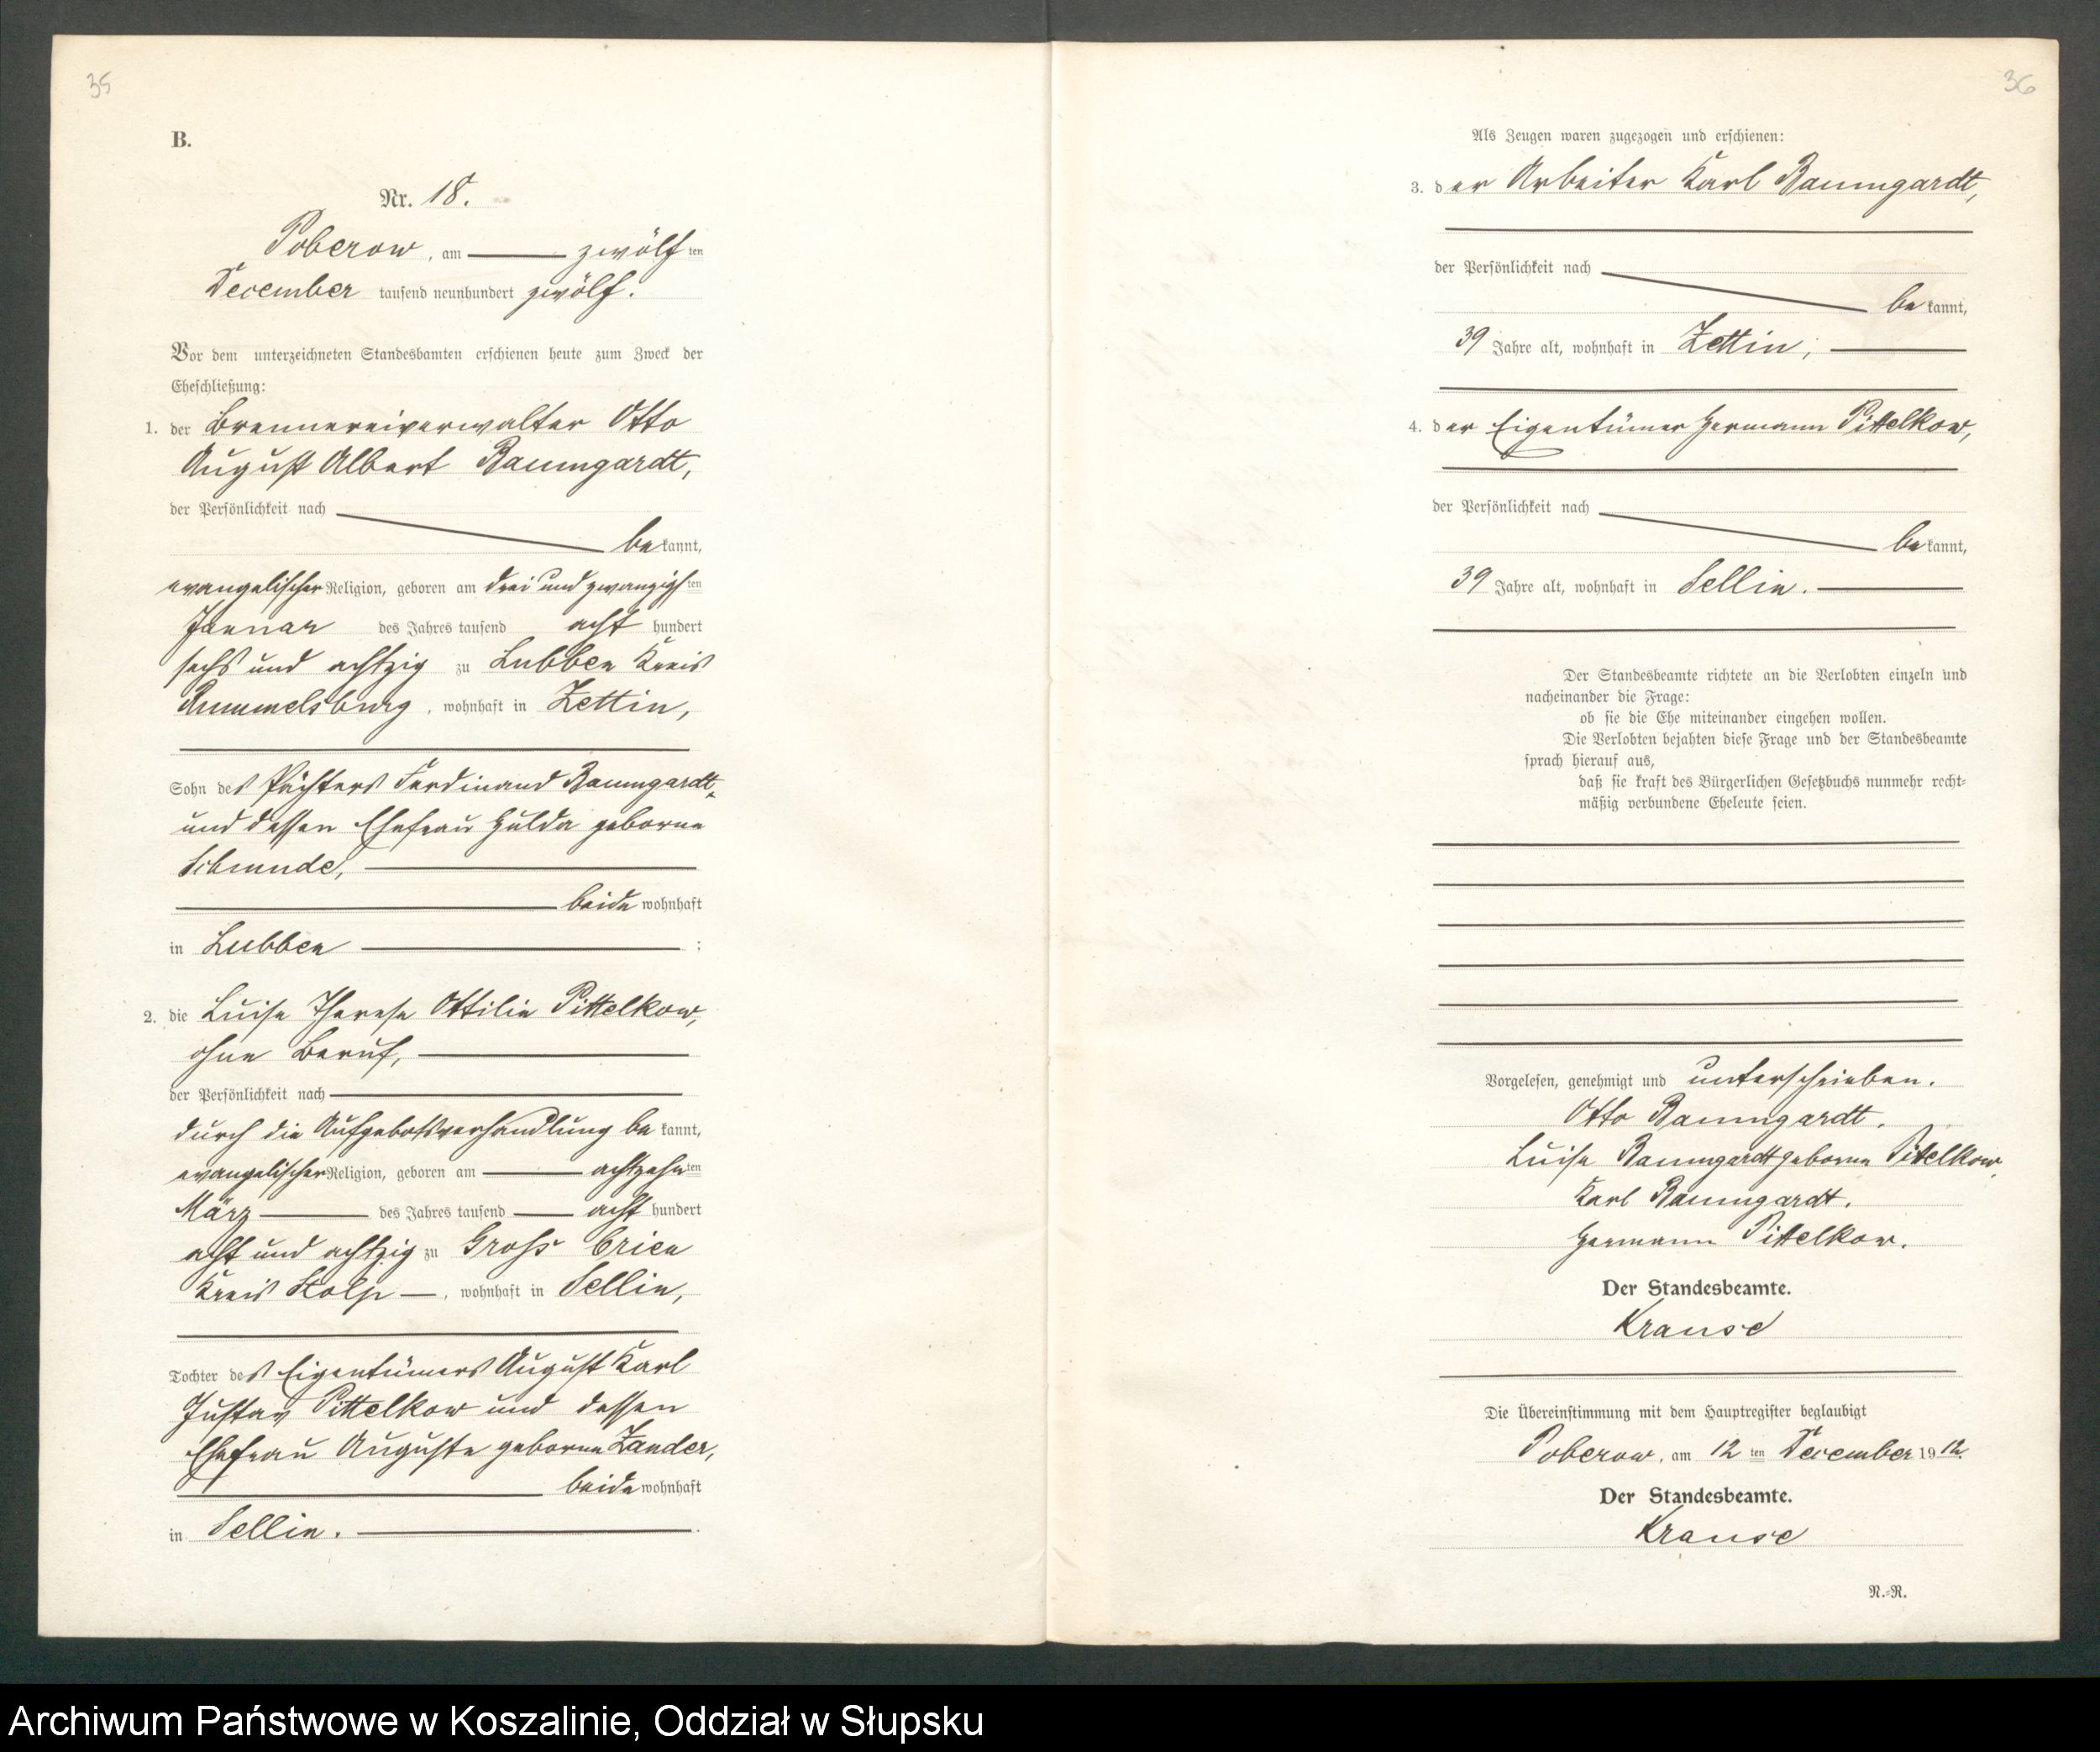 35
B.
Nr. 18.
Poberow, am zwölf ten
December tausend neunhundert zwölf.
Vor dem unterzeichneten Standesbamten erschienen heute zum Zweck der
Eheschließung:
1. der Brennereiverwalter Otto
August Albert Baumgardt,
der Persönlichkeit nach
be kannt,
evangelischer Religion, geboren am drei und zwanzigs ten
Januar des Jahres tausend acht hundert
sechs und achtzig zu Lubben Kreis
Rummelsburg, wohnhaft in Zettin,
Sohn des Pächters Ferdinand Baumgardt
und dessen Ehefrau Hulda geborne
Schmude,
beide wohnhaft
in Lubben ;
2. die Luise Therese Ottilie Pittelkow,
ohne Beruf,
der Persönlichkeit nach
durch die Aufgebotsverhandlung be kannt,
evangelischer Religion, geboren am achtzehn ten
März des Jahres tausend acht hundert
acht und achtzig zu Gross
Kreis Stolp, wohnhaft in Sellin,
Tochter des Eigentümers August Karl
Gustav Pittelkow und dessen
Ehefrau Auguste geborne Zander,
beide wohnhaft
in Sellin.
36
Als Zeugen waren zugezogen und erschienen:
3. der Arbeiter Karl Baumgardt,
der Persönlichkeit nach
be kannt,
39 Jahre alt, wohnhaft in Zettin;
4. der Eigentümer Hermann Pittelkow,
der Persönlichkeit nach
be kannt,
39 Jahre alt, wohnhaft in Sellin.
Der Standesbeamte richtete an die Verlobten einzeln und
nacheinander die Frage:
ob sie die Ehe miteinander eingehen wollen.
Die Verlobten bejahten diese Frage und der Standesbeamte
sprach hierauf aus,
daß sie kraft des Bürgerlichen Gesetzbuchs nunmehr recht-
mäßig verbundene Eheleute seien.
Vorgelesen, genehmigt und unterschrieben.
Otto Baumgardt.
Luise Baumgardt geborne Pittelkow.
Karl Baumgardt.
Hermann Pittelkow.
Der Standesbeamte.
Krause
Die Übereinstimmung mit dem Hauptregister beglaubigt
Poberow, am 12 ten December 19 12.
Der Standesbeamte.
Krause
N.-R.
Archiwum Państwowe w Koszalinie, Oddział w Słupsku